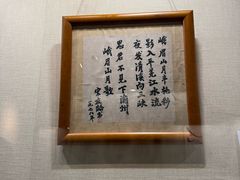 峨眉山月半轮秋
影入平羌江水流
夜发清溪向三峡
思君不见下渝州
峨眉山月歌